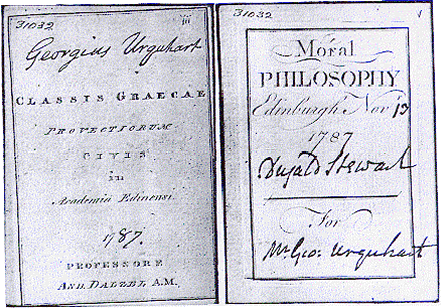 31032 iii
Georgius Urquhart
CLASSIS GRAECAE
PROVECTIORUM
CIVIS
in
Academia Edinensi
1787.
PROFESSORE
AND. DALZEL A.M.
31032 1
Moral
PHILOSOPHY
Edinburgh Nov 13
1787
Dugald Stewart
For
Mr. Geo: Urquhart